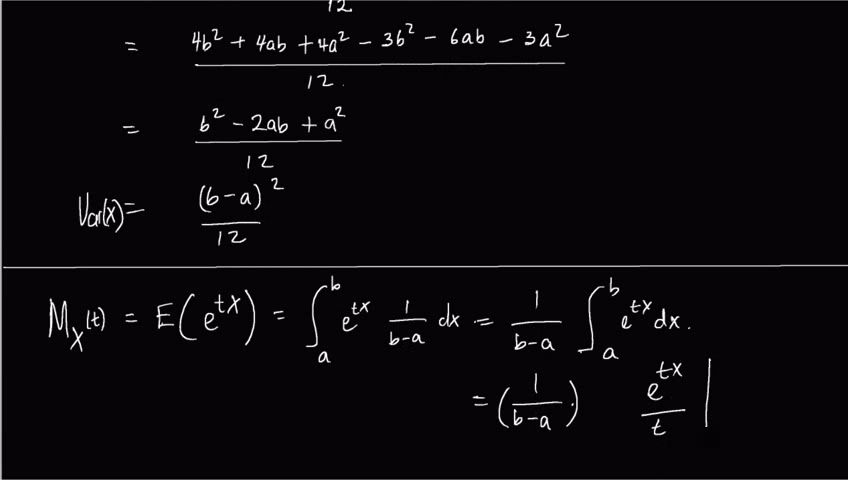 12
= (4b² + 4ab + 4a² - 3b² - 6ab - 3a²) / 12.
= (b² - 2ab + a²) / 12
Var(x) = (b-a)² / 12
M_X(t) = E(e^{tX}) = ∫_a^b e^{tx} 1/(b-a) dx = 1/(b-a) ∫_a^b e^{tx} dx.
= (1/(b-a)) · e^{tx}/t |